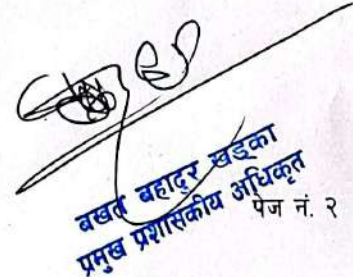 बखत बहादुर खड्का
प्रमुख प्रशासकीय अधिकृत
पेज नं. २